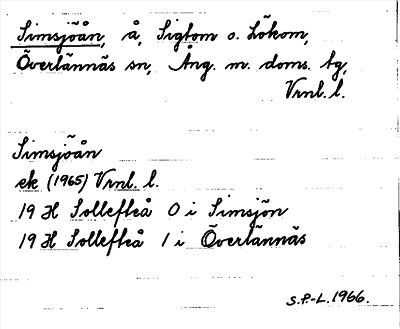 Simsjöån, å, Sigtom o. Lökom,
Överlännäs sn, Ång. m. doms. tg,
Vrnl. l.
Simsjöån
ek (1965) Vrnl. l.
19 H Sollefteå 0 i Simsjön
19 H Sollefteå 1 i Överlännäs
S.P-L. 1966.